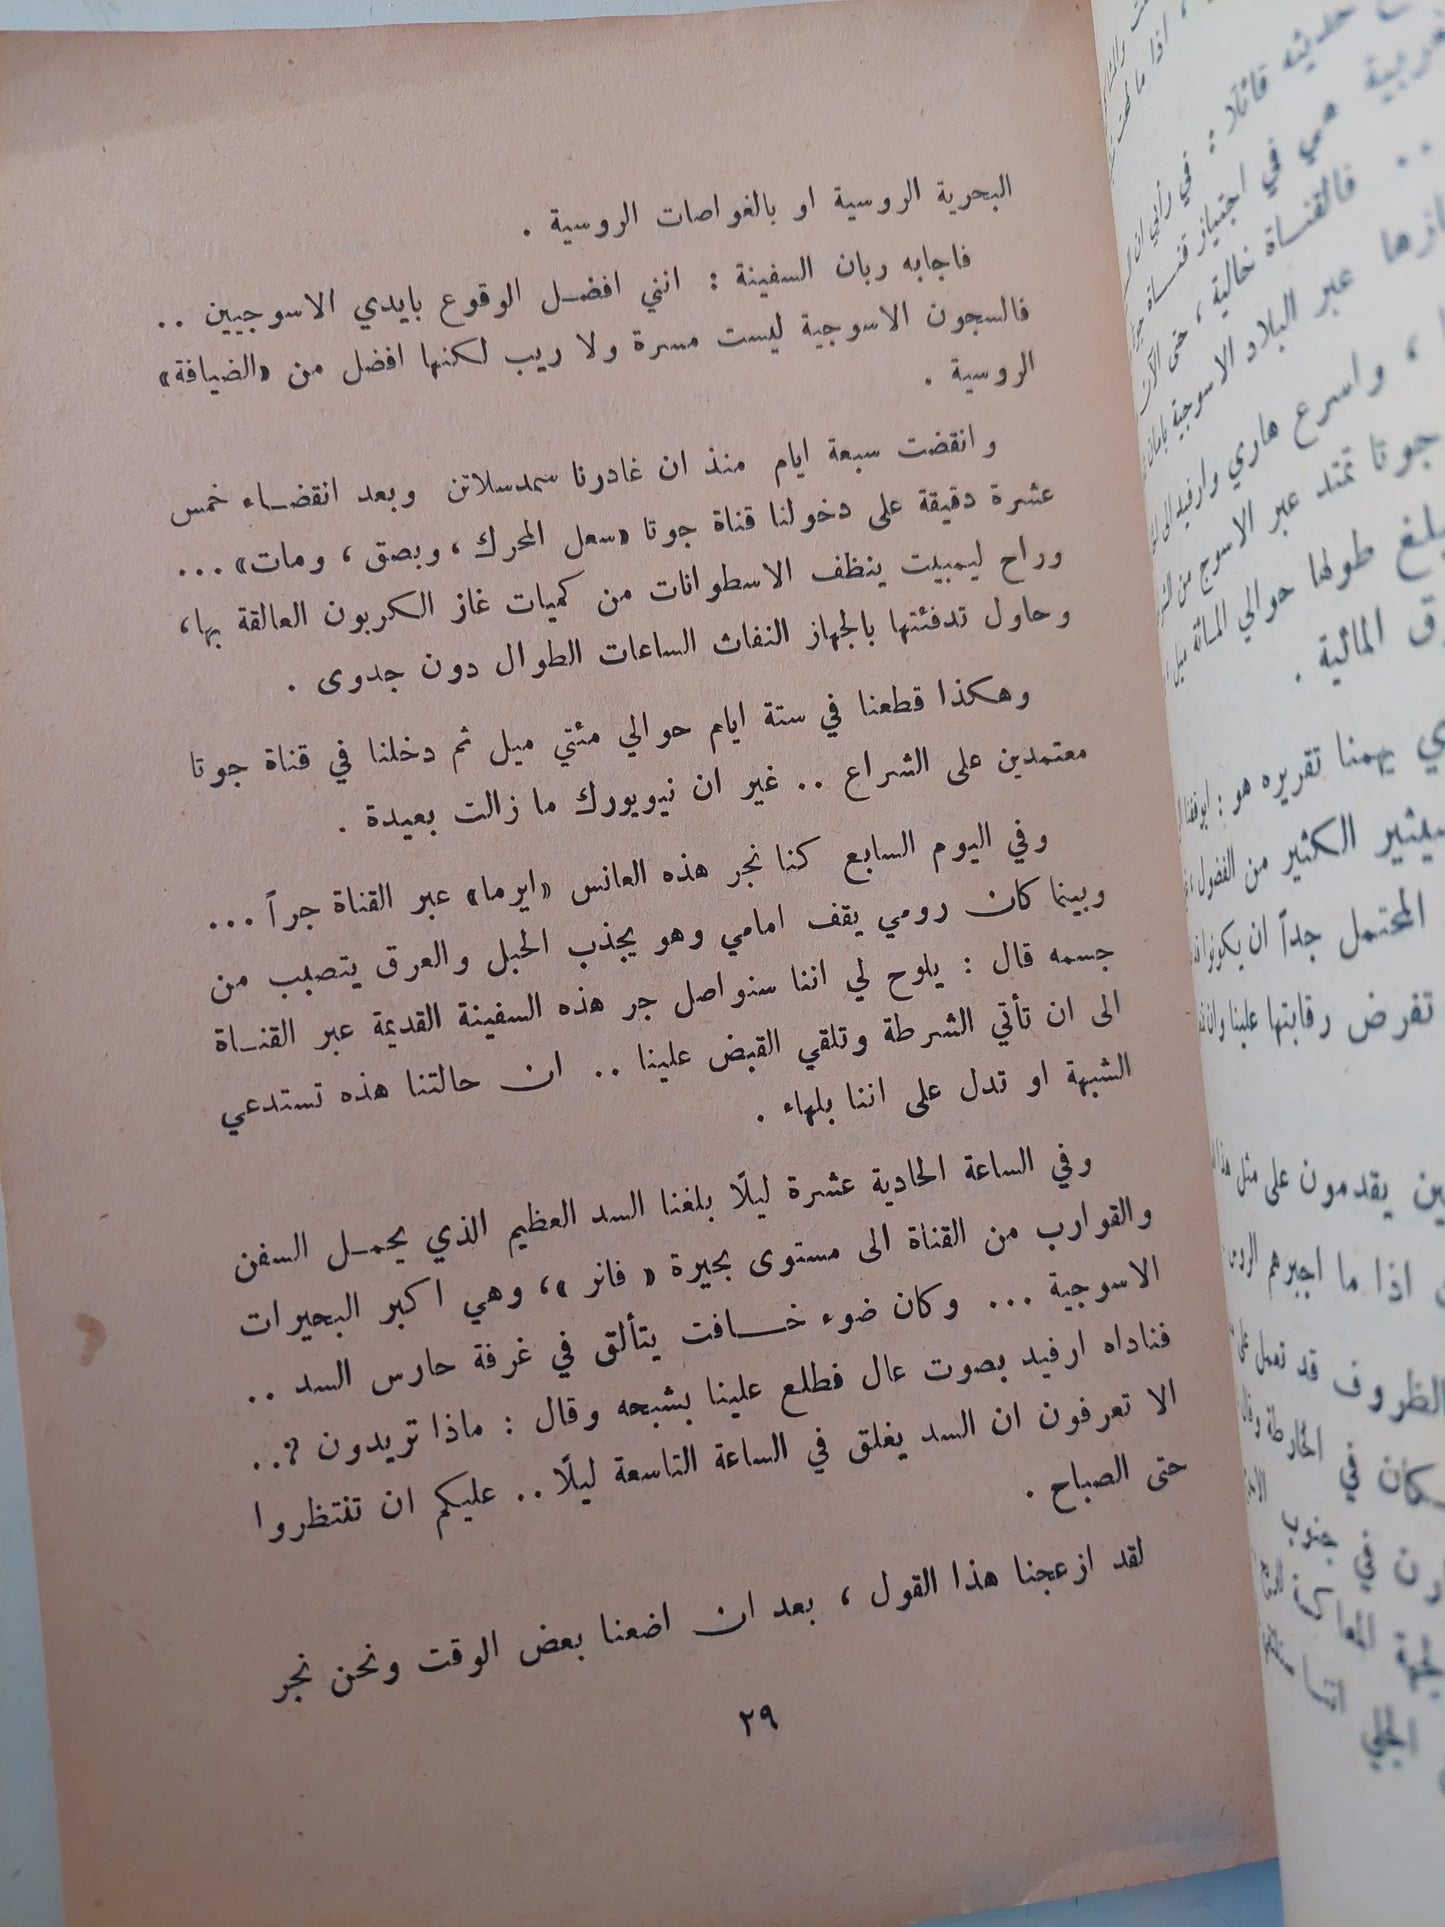 البحرية الروسية او بالغواصات الروسية .
فاجابه ربان السفينة : انني افضل الوقوع بايدي الاسوجيين ..
فالسجون الاسوجية ليست مسرة ولا ريب لكنها افضل من «الضيافة»
الروسية .
وانقضت سبعة ايام منذ ان غادرنا سمدسلاتن وبعد انقضاء خمس
عشرة دقيقة على دخولنا قناة جوتا «سعل المحرك ، وبصق ، ومات» ...
وراح ليمبيت ينظف الاسطوانات من كميات غاز الكربون العالقة بها،
وحاول تدفئتها بالجهاز النفاث الساعات الطوال دون جدوى .
وهكذا قطعنا في ستة ايام حوالي مئتي ميل ثم دخلنا في قناة جوتا
معتمدين على الشراع .. غير ان نيويورك ما زالت بعيدة .
وفي اليوم السابع كنا نجر هذه العانس «ايرما» عبر القناة جراً ...
وبينما كان رومي يقف امامي وهو يجذب الحبل والعرق يتصبب من
جسمه قال : يلوح لي اننا سنواصل جر هذه السفينة القديمة عبر القناة
الى ان تأتي الشرطة وتلقي القبض علينا .. ان حالتنا هذه تستدعي
الشبهة او تدل على اننا بلهاء .
وفي الساعة الحادية عشرة ليلًا بلغنا السد العظيم الذي يحمل السفن
والقوارب من القناة الى مستوى بحيرة « فانر »، وهي اكبر البحيرات
الاسوجية ... وكان ضوء خافت يتألق في غرفة حارس السد ..
فناداه ارفيد بصوت عال فطلع علينا بشبحه وقال : ماذا تريدون ?..
الا تعرفون ان السد يغلق في الساعة التاسعة ليلًا .. عليكم ان تنتظروا
حتى الصباح .
لقد ازعجنا هذا القول ، بعد ان اضعنا بعض الوقت ونحن نجر
٢٩
حديثه قائلا : في رأيي ان
هي في اجتياز قناة
.. فالقناة خالية ، حتى الآن
عبر البلاد الاسوجية بامان
، واسرع هاري وارفيد الى
جوتا تمتد عبر الاسوج من
يبلغ طولها حوالي المائة ميل
المائية .
يهمنا تقريره هو :
سيثير الكثير من الفضول
المحتمل جداً ان يكونوا
تفرض رقابتها علينا
يقدمون على مثل
اذا ما اجبرهم
الظروف قد تعمل على
في الخارطة
في جنوب